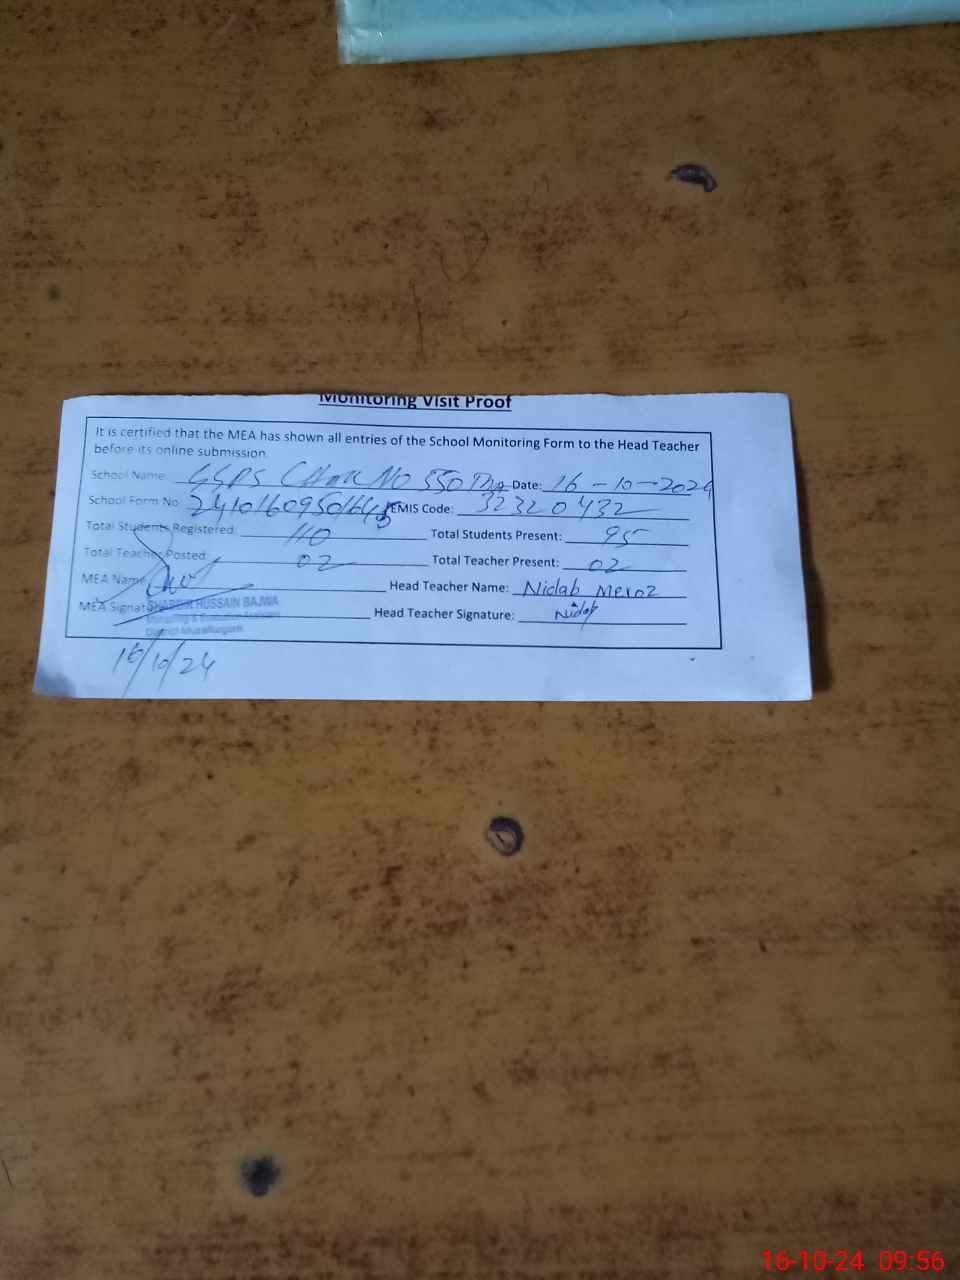 Monitoring Visit Proof
It is certified that the MEA has shown all entries of the School Monitoring Form to the Head Teacher
before its online submission.
School Name: CHAK NO 550 Date: 16-10-2024
School Form No: EMIS Code: 32320432
Total Students Registered: 110 Total Students Present: 95
Total Teacher Posted: 02 Total Teacher Present: 02
MEA Name: Head Teacher Name: Nidab Meroz
MEA Signature: Head Teacher Signature: Nidab
HUSSAIN BAJWA
16/10/24
16-10-24 09:56